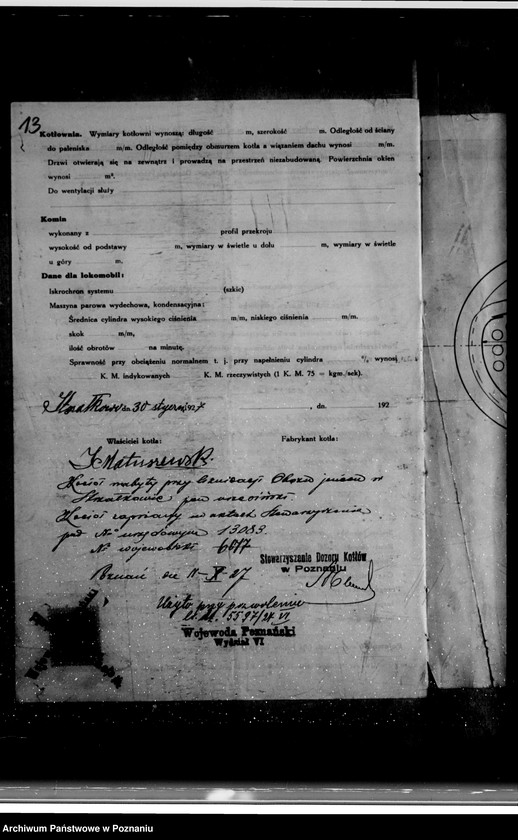 13
Kotłownia. Wymiary kotłowni wynoszą: długość m, szerokość m. Odległość od ściany
do paleniska m/m. Odległość pomiędzy obmurzem kotła a wiązaniem dachu wynosi m/m.
Drzwi otwierają się na zewnątrz i prowadzą na przestrzeń niezabudowaną. Powierzchnia okien
wynosi m².
Do wentylacji służy
Komin
wykonany z profil przekroju
wysokość od podstawy m, wymiary w świetle u dołu m, wymiary w świetle
u góry m.
Dane dla lokomobil:
Iskrochron systemu (szkic)
Maszyna parowa wydechowa, kondensacyjna:
Średnica cylindra wysokiego ciśnienia m/m, niskiego ciśnienia m/m.
skok m/m,
ilość obrotów na minutę.
Sprawność przy obciążeniu normalnem t. j. przy napełnieniu cylindra % wynosi
K. M. indykowanych K. M. rzeczywistych (1 K. M. 75 = kgm./sek).
Strzałkowo dn. 30 stycznia 1927 , dn. 192
Właściciel kotła: Fabrykant kotła:
J. Matuszewski.
Kocioł nabyty przy likwidacji Obozu jeńców w
Strzałkowie
Kocioł zapisany w aktach Stowarzyszenia
pod No urzędowym 13083
No wojewódzki 6617
Poznań 11-X 27
Stowarzyszanie Dozoru Kotłów
w Poznaniu
Użyto przy pozwoleniu
5597/27 VI
Wojewoda Poznański
Wydział VI
Archiwum Państwowe w Poznaniu